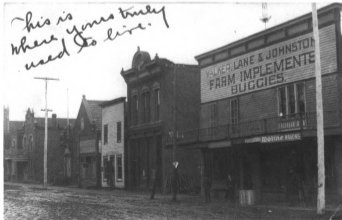 This is
where yours truly
used to live.
PALMER, LANE & JOHNSTON
FARM IMPLEMENTS
BUGGIES